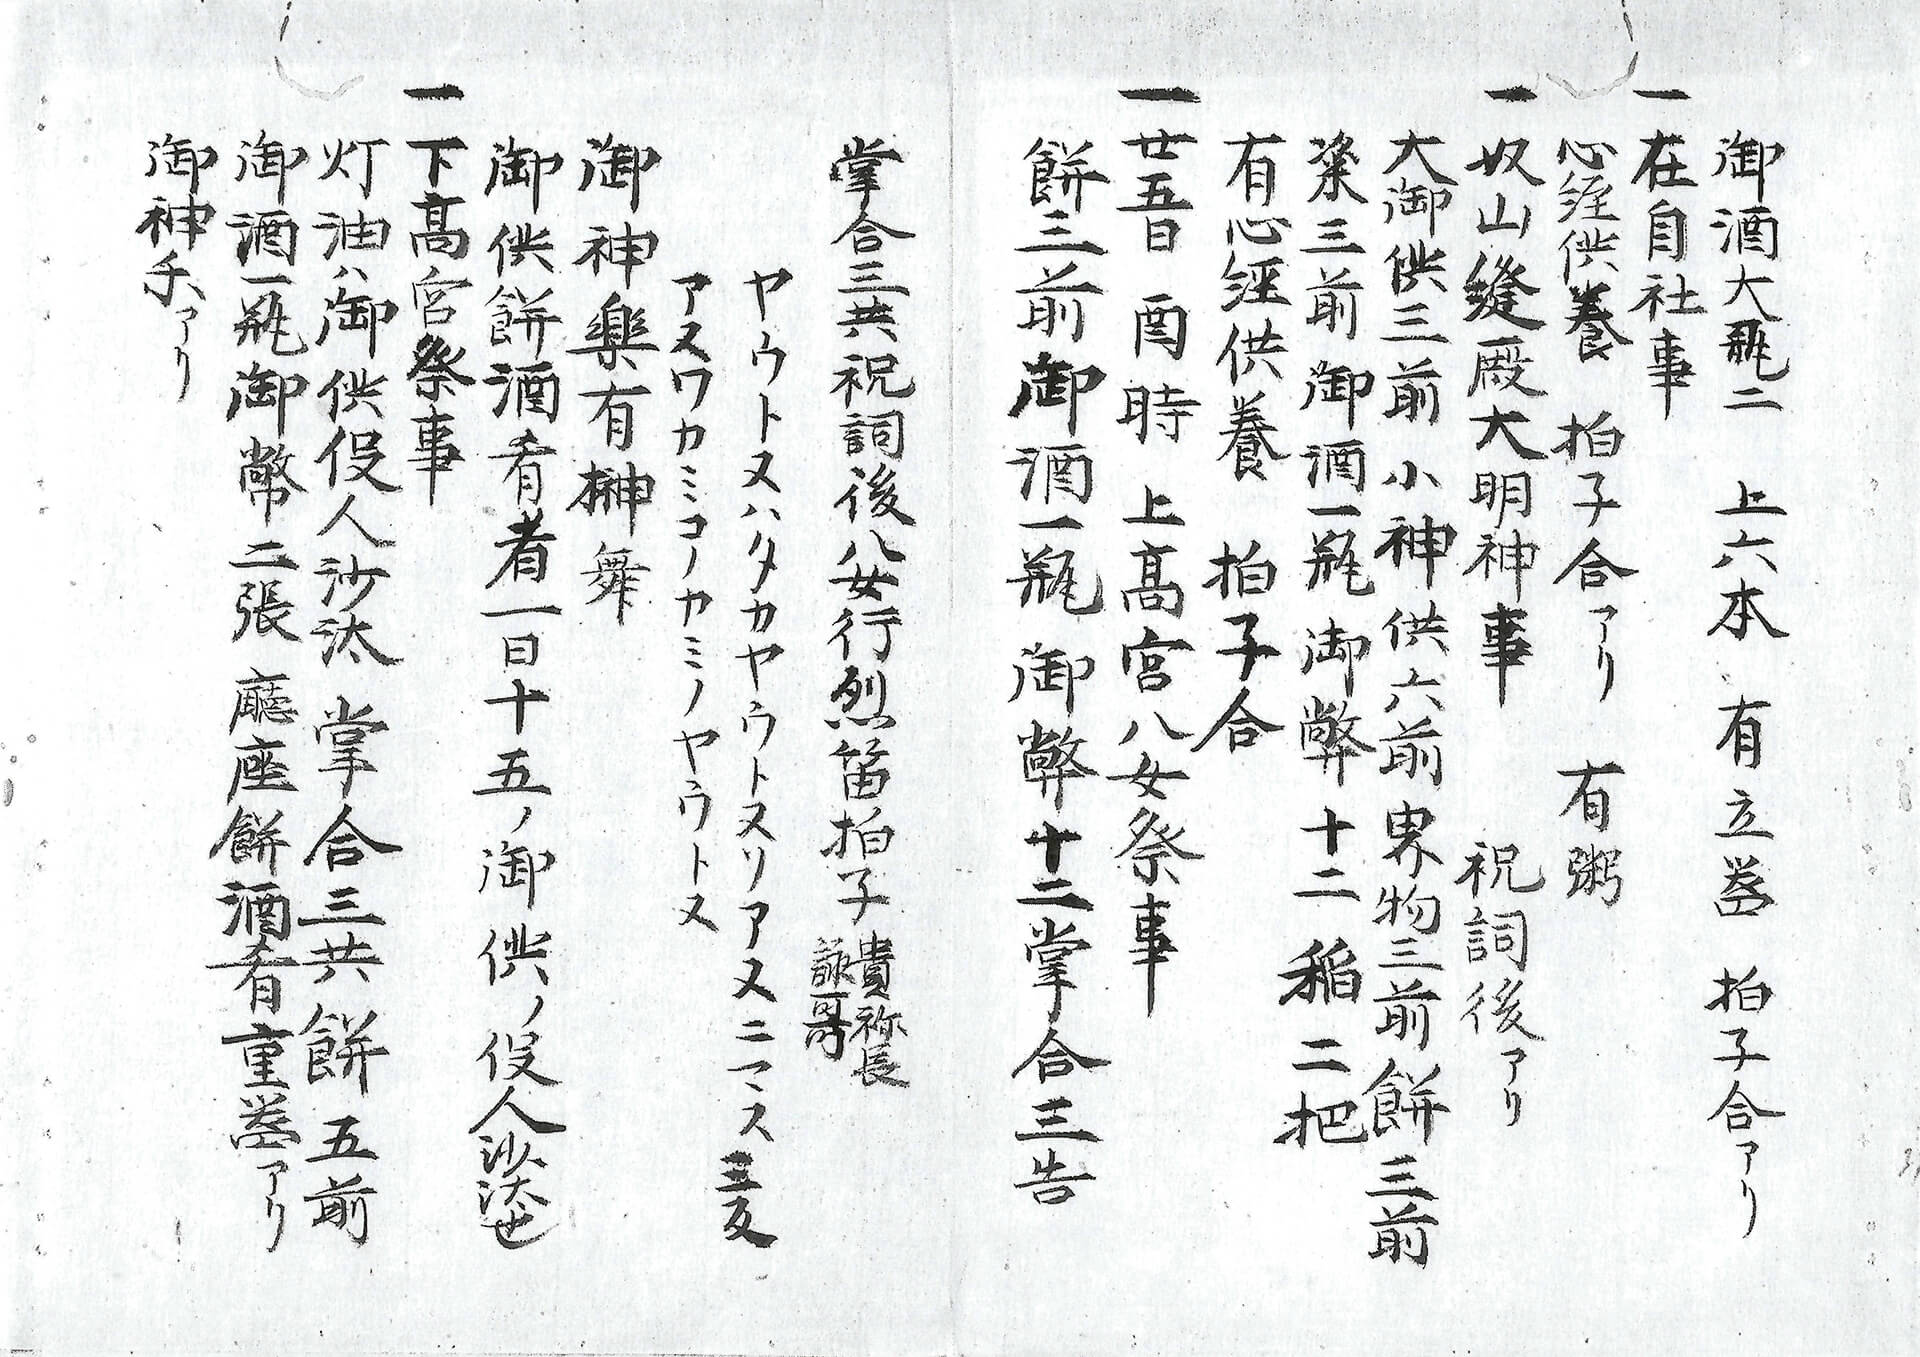 御酒大瓶二　上六本　有立盞　拍子合アリ
一　在自社事
心経供養　拍子合アリ　有粥
一　奴山縫殿大明神事　祝詞後アリ
大御供三前小神供六前果物三前餅三前
粢三前御酒一瓶御弊十二稲二把
有心経供養　拍子合
一　廿五日　酉時　上高宮八女祭事
餅三前御酒一瓶御弊十二掌合三告
掌合三共祝詞後八女行烈笛拍子　貴祢長詠哥
ヤウトヌハタカヤウトスリアヌニマス　三反
アスワカミコノカミノヤウトス
御神楽有榊舞
御供餅酒肴者一日十五ノ御供ノ役人沙汰也
一　下高宮祭事
灯油ハ御供役人沙汰　掌合三共餅五前
御酒一瓶御幣二張　廳座餅酒肴重盞アリ
御神手アリ